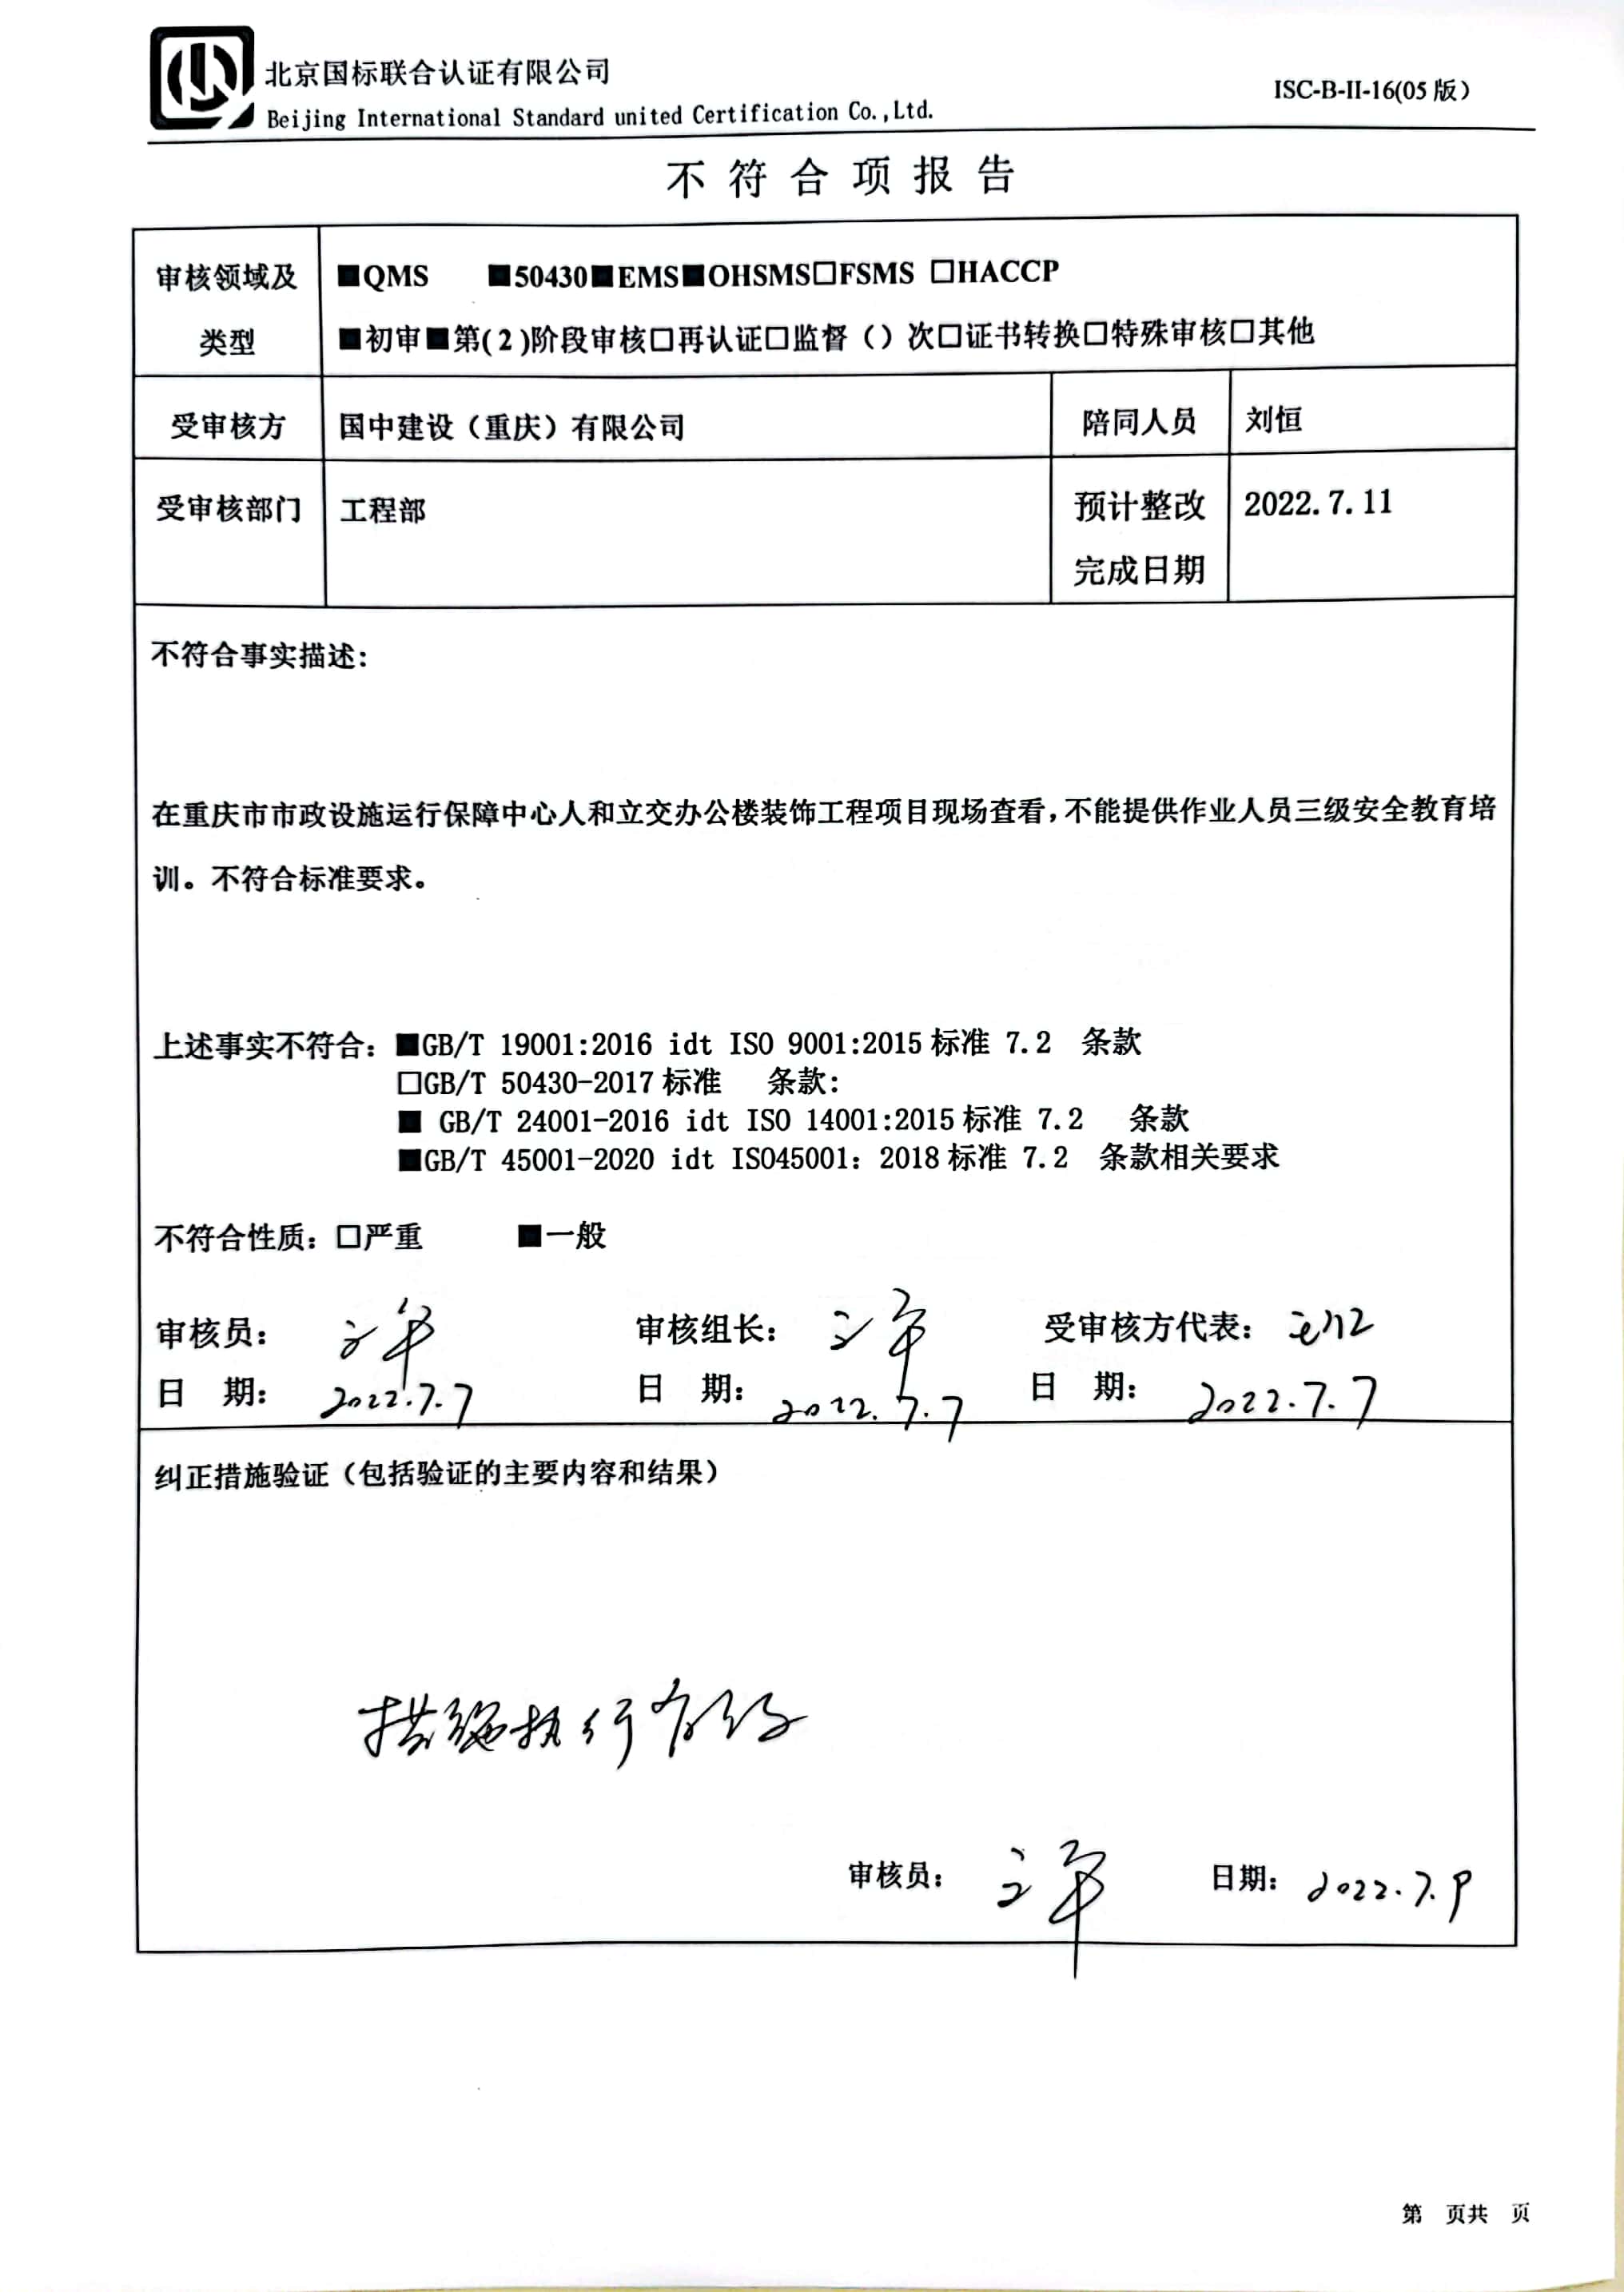 北京国标联合认证有限公司
Beijing International Standard united Certification Co.,Ltd.
ISC-B-II-16(05 版)
不符合项报告
审核领域及类型
■QMS ■50430■EMS■OHSMS□FSMS □HACCP
■初审■第(2)阶段审核□再认证□监督()次□证书转换□特殊审核□其他
受审核方 国中建设（重庆）有限公司 陪同人员 刘恒
受审核部门 工程部 预计整改完成日期 2022.7.11
不符合事实描述：
在重庆市市政设施运行保障中心人和立交办公楼装饰工程项目现场查看，不能提供作业人员三级安全教育培
训。不符合标准要求。
上述事实不符合：■GB/T 19001:2016 idt ISO 9001:2015 标准 7.2 条款
□GB/T 50430-2017 标准 条款：
■ GB/T 24001-2016 idt ISO 14001:2015 标准 7.2 条款
■GB/T 45001-2020 idt ISO45001：2018 标准 7.2 条款相关要求
不符合性质：□严重 ■一般
审核员： 审核组长： 受审核方代表：
日 期： 2022.7.7 日 期： 2022.7.7 日 期： 2022.7.7
纠正措施验证（包括验证的主要内容和结果）
措施执行有效
审核员： 日期： 2022.7.9
第 页共 页